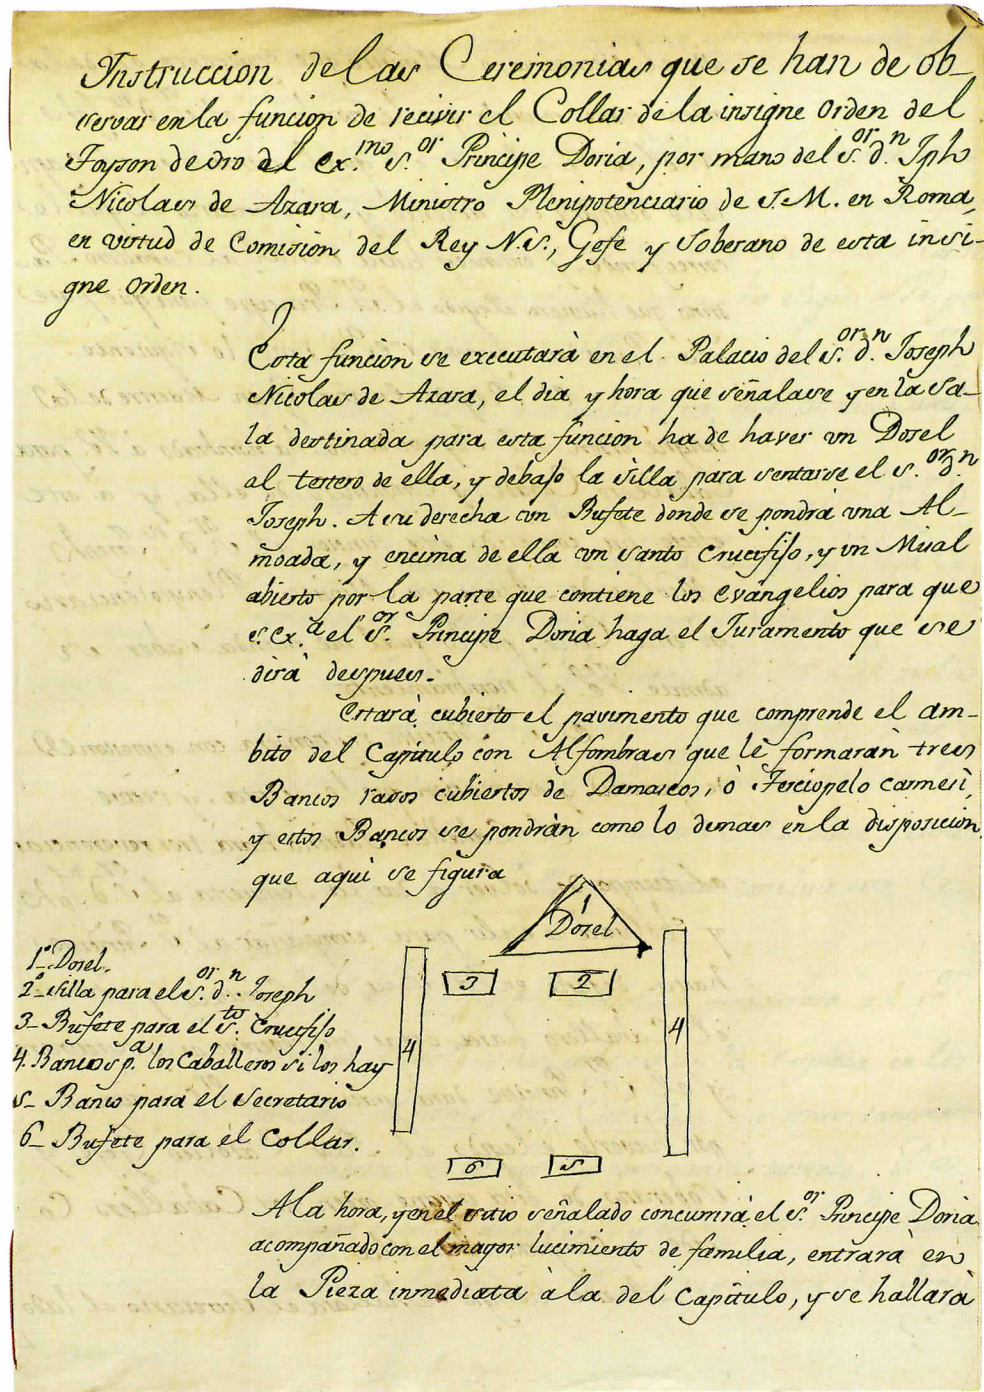 Instruccion de las Ceremonias que se han de ob-
servar en la funcion de recivir el Collar de la insigne Orden del
Toyson de Oro el Ex.mo S.or Principe Doria, por mano del S.or d.n Jph
Nicolas de Azara, Ministro Plenipotenciario de S.M. en Roma,
en virtud de Comision del Rey N.S., Gefe y Soberano de esta insi-
gne Orden.
Esta funcion se executarà en el Palacio del S.or d.n Joseph
Nicolas de Azara, el dia y hora que señalase y en la sa-
la destinada para esta funcion ha de haver un Dosel
al testero de ella, y debajo la silla para sentarse el S.or d.n
Joseph. A su derecha un Bufete donde se pondrà una Al-
moada, y encima de ella un Santo Crucifijo, y un Misal
abierto por la parte que contiene los Evangelios para que
S.Ex.a el S.or Principe Doria haga el Juramento que se
dirà despues.
Estarà cubierto el pavimento que comprende el am-
bito del Capitulo con Alfombras que le formaràn tres
Bancos rasos cubiertos de Damascos, ò Terciopelo Carmesì,
y estos Bancos se pondràn como lo demas en la disposicion
que aqui se figura
1
Dosel
1º Dosel.
2º Silla para el S.or d.n Joseph
3- Bufete para el S.to Crucifijo
4. Bancos p.a los Caballeros si los hay
5- Banco para el Secretario
6- Bufete para el Collar.
3
2
4
4
6
5
A la hora, y en el sitio señalado concurrirà el S.or Principe Doria
acompañado con el mayor lucimiento de familia, entrarà en
la Pieza inmediata à la del Capitulo, y se hallarà